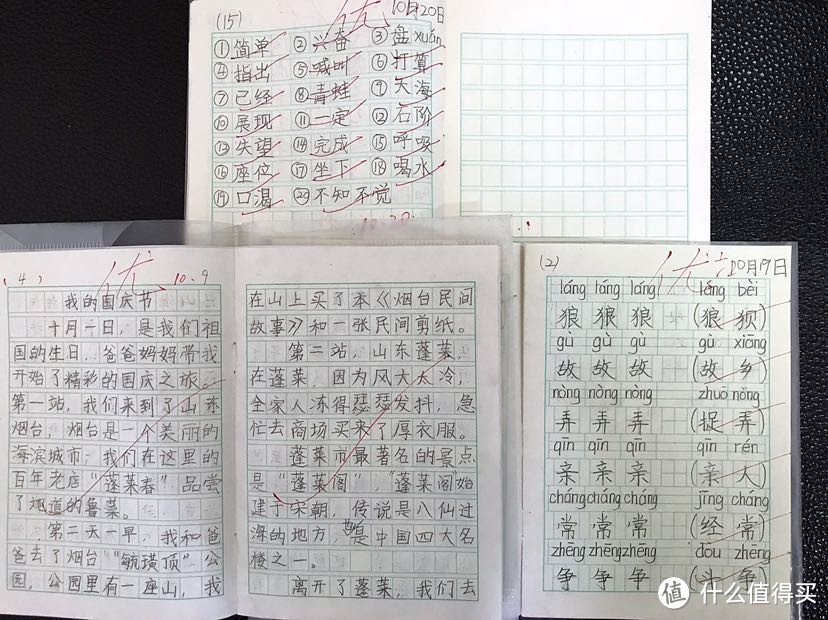 (15) 优 10月20日
①简单 ②兴奋 ③盘xuán
④指出 ⑤喊叫 ⑥打算
⑦已经 ⑧青蛙 ⑨大海
⑩展现 ⑪一定 ⑫石阶
⑬失望 ⑭完成 ⑮呼吸
⑯座位 ⑰坐下 ⑱喝水
⑲口渴 ⑳不知不觉
(4) 优 10.9
我的国庆节
十月一日，是我们祖
国的生日，爸爸妈妈带我
开始了精彩的国庆之旅。
第一站，我们来到了山东
烟台，烟台是一个美丽的
海滨城市，我们在这里的
百年老店“蓬莱春”品尝
了地道的鲁菜。
第二天一早，我和爸
爸去了烟台“毓璜顶”公
园，公园里有一座山，我
在山上买了本《烟台民间
故事》和一张民间剪纸。
第二站，山东蓬莱，
在蓬莱，因为风大太冷，
全家人冻得瑟瑟发抖，急
忙去商场买来了厚衣服。
蓬莱市最著名的景点
是“蓬莱阁”，“蓬莱阁始
建于宋朝，传说是八仙过
海的地方，也是中国四大名
楼之一。
离开了蓬莱，我们去
(2) 优 10月19日
láng láng láng láng bèi
狼 狼 狼 (狼 狈)
gù gù gù gù xiāng
故 故 故 (故 乡)
nòng nòng nòng zhuō nòng
弄 弄 弄 (捉 弄)
qīn qīn qīn qīn rén
亲 亲 亲 (亲 人)
cháng cháng cháng jīng cháng
常 常 常 (经 常)
zhēng zhēng zhēng dòu zhēng
争 争 争 (斗 争)
值 什么值得买